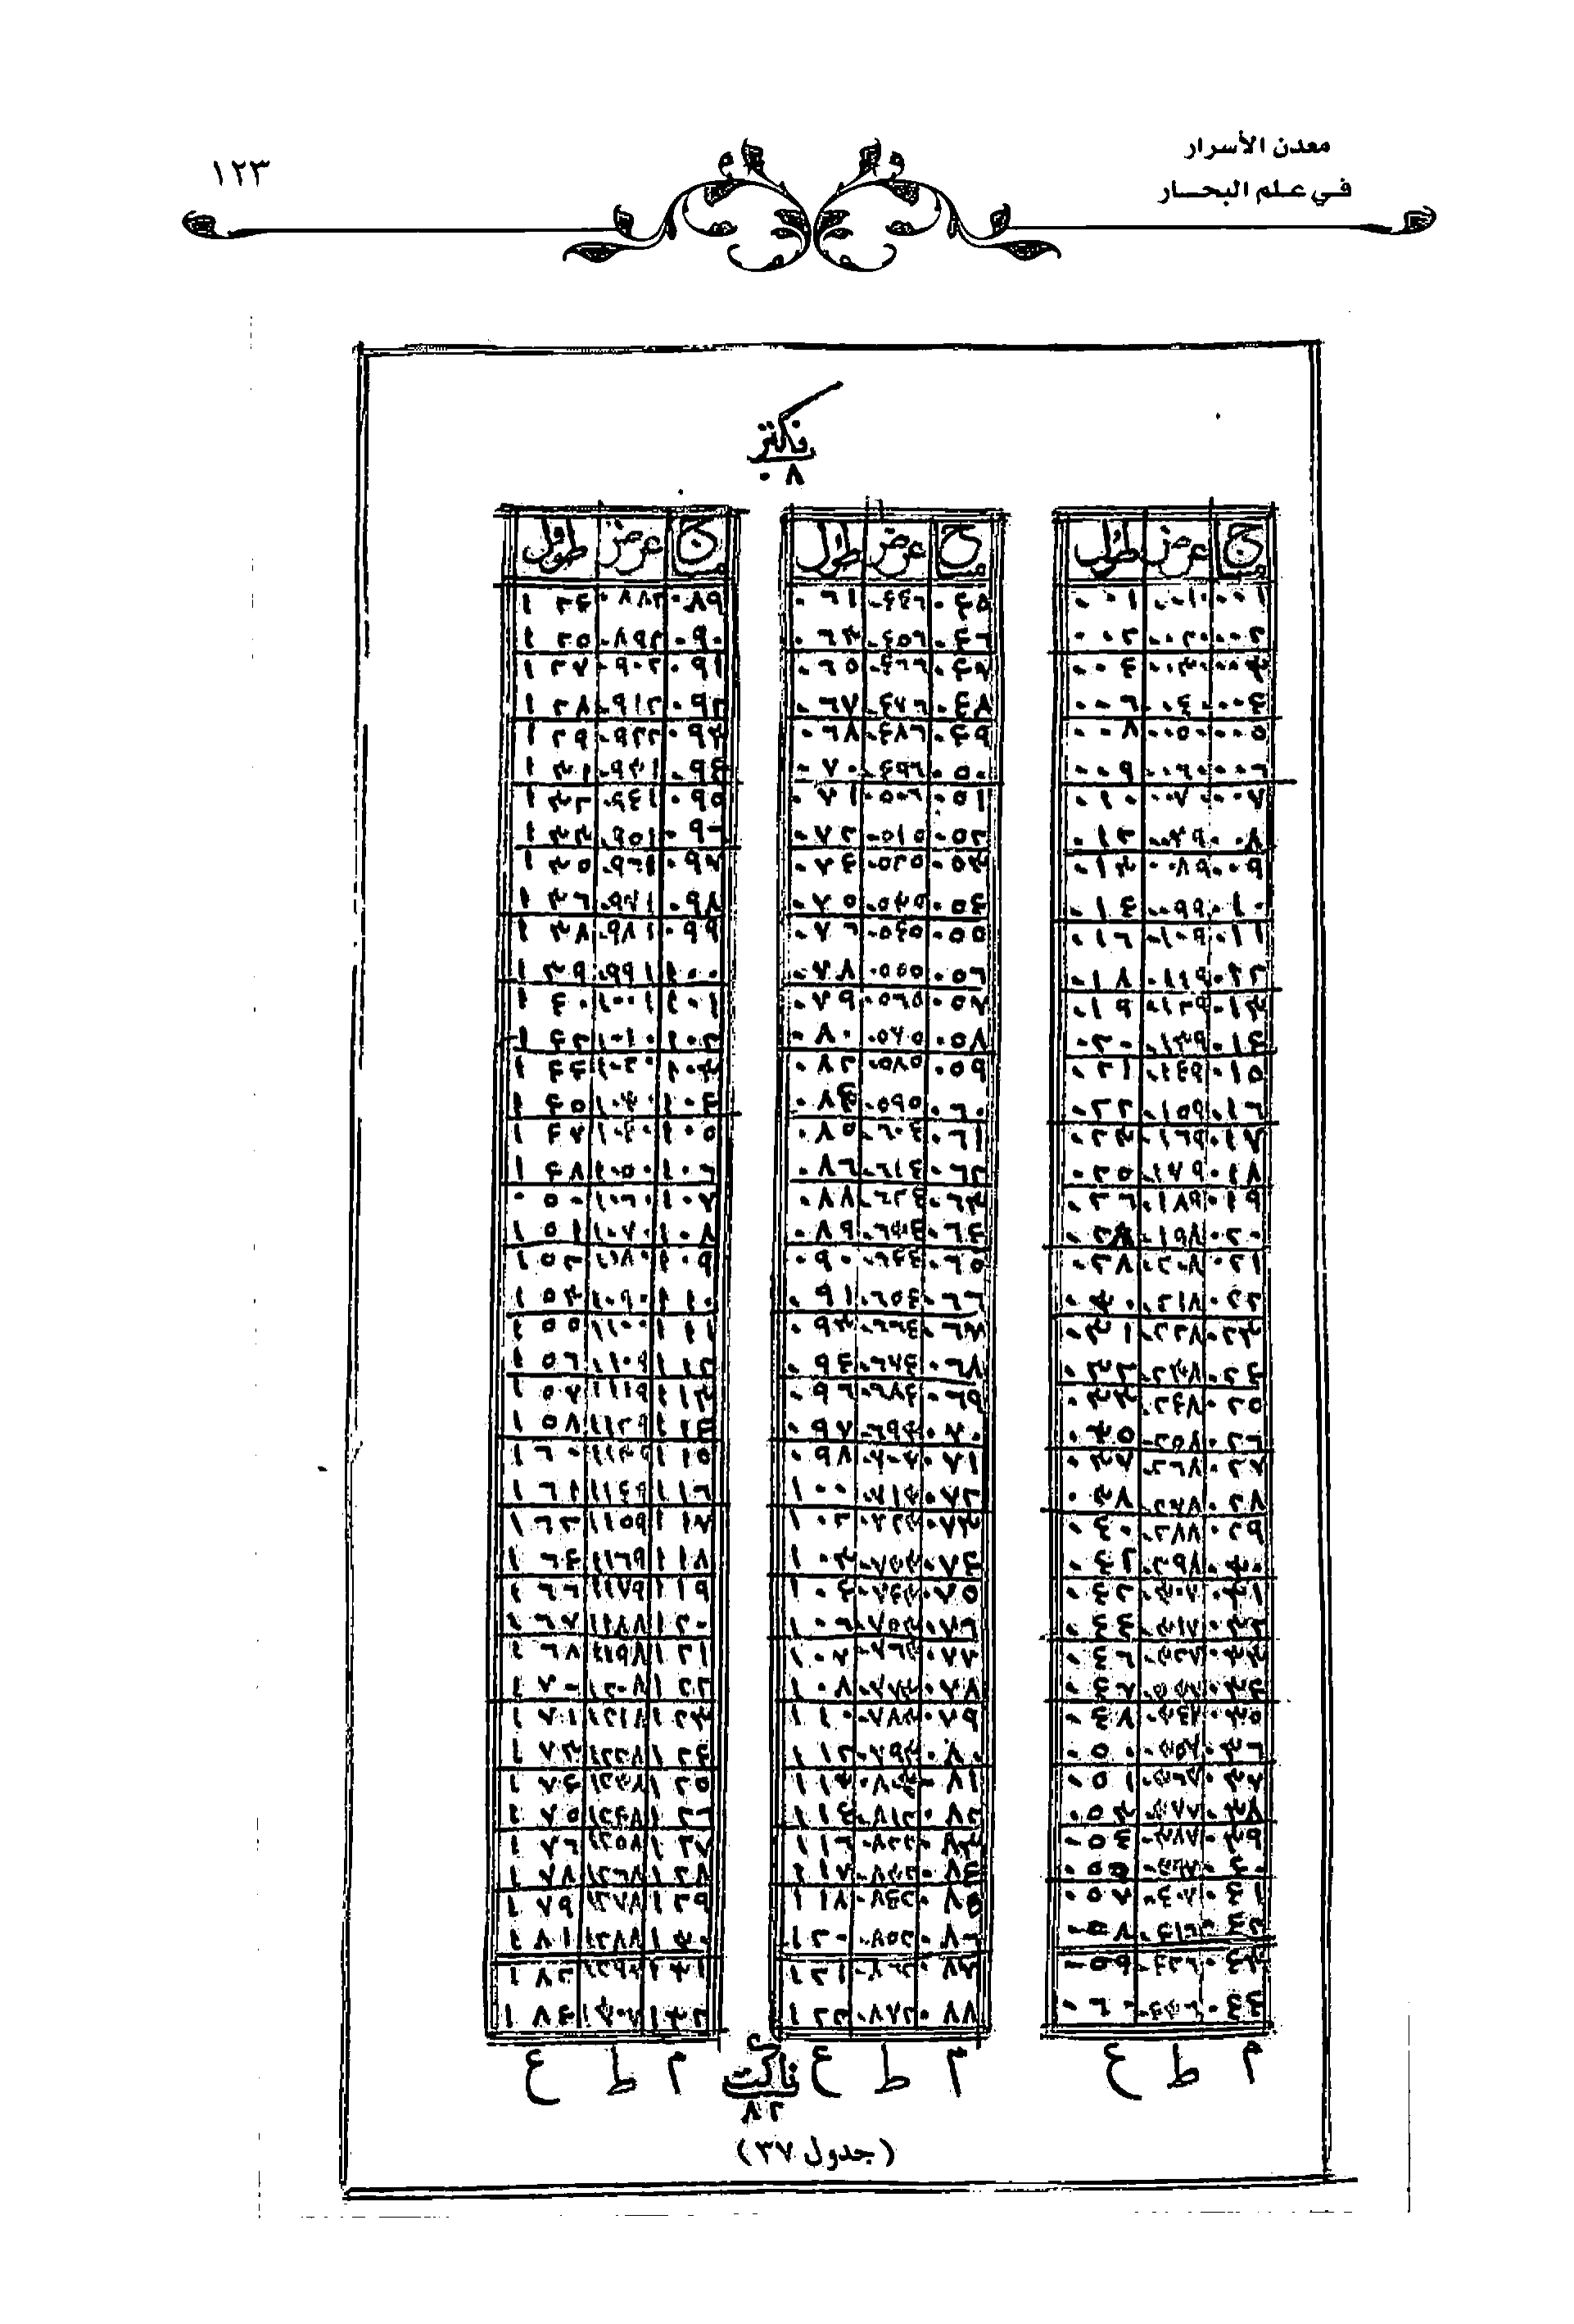 معدن الأسرار
في علم البحار
١٢٣
ناكتز
٠٨
ح عرض طول
٠٠١ ٠٠١٠ ٠٠١
٠٠٢ ٠٠٢٠ ٠٠٢
٠٠٣ ٠٠٣٠ ٠٠٤
٠٠٤ ٠٠٤٠ ٠٠٦
٠٠٥ ٠٠٥٠ ٠٠٨
٠٠٦ ٠٠٦٠ ٠٠٩
٠٠٧ ٠٠٧٠ ٠١٠
٠٠٨ ٠٠٧٩ ٠١٢
٠٠٩ ٠٠٨٩ ٠١٣
٠١٠ ٠٠٩٩ ٠١٤
٠١١ ٠١٠٩ ٠١٦
٠١٢ ٠١١٩ ٠١٨
٠١٣ ٠١٢٩ ٠١٩
٠١٤ ٠١٣٩ ٠٢٠
٠١٥ ٠١٤٩ ٠٢١
٠١٦ ٠١٥٩ ٠٢٢
٠١٧ ٠١٦٩ ٠٢٣
٠١٨ ٠١٧٩ ٠٢٥
٠١٩ ٠١٨٩ ٠٢٦
٠٢٠ ٠١٩٨
٠٢١ ٠٢٠٨ ٠٢٨
٠٢٢ ٠٢١٨ ٠٣٠
٠٢٣ ٠٢٢٨ ٠٣١
٠٢٤ ٠٢٣٨ ٠٣٢
٠٢٥ ٠٢٤٨ ٠٣٣
٠٢٦ ٠٢٥٨ ٠٣٥
٠٢٧ ٠٢٦٨ ٠٣٧
٠٢٨ ٠٢٧٨ ٠٣٨
٠٢٩ ٠٢٨٨ ٠٤٠
٠٣٠ ٠٢٩٨
٠٣١ ٠٣٠٧ ٠٤٢
٠٣٢ ٠٣١٧ ٠٤٤
٠٣٣ ٠٣٢٧ ٠٤٦
٠٣٤ ٠٣٣٧ ٠٤٧
٠٣٥ ٠٣٤٧ ٠٤٨
٠٣٦ ٠٣٥٧ ٠٥٠
٠٣٧ ٠٣٦٧ ٠٥١
٠٣٨ ٠٣٧٧ ٠٥٣
٠٣٩ ٠٣٨٧ ٠٥٤
٠٤٠ ٠٣٩٧ ٠٥٥
٠٤١ ٠٤٠٧ ٠٥٧
٠٤٢ ٠٤١٦ ٠٥٨
٠٤٣ ٠٤٢٦ ٠٥٩
٠٤٤ ٠٤٣٦ ٠٦٠
م ط ع
ح عرض طول
٠٤٥ ٠٤٤٦ ٠٦١
٠٤٦ ٠٤٥٦ ٠٦٣
٠٤٧ ٠٤٦٦ ٠٦٥
٠٤٨ ٠٤٧٦ ٠٦٧
٠٤٩ ٠٤٨٦ ٠٦٨
٠٥٠ ٠٤٩٦ ٠٧٠
٠٥١ ٠٥٠٦ ٠٧١
٠٥٢ ٠٥١٥ ٠٧٢
٠٥٣ ٠٥٢٥ ٠٧٤
٠٥٤ ٠٥٣٥ ٠٧٥
٠٥٥ ٠٥٤٥ ٠٧٦
٠٥٦ ٠٥٥٥ ٠٧٨
٠٥٧ ٠٥٦٥ ٠٧٩
٠٥٨ ٠٥٧٥ ٠٨٠
٠٥٩ ٠٥٨٥ ٠٨٢
٠٦٠ ٠٥٩٥
٠٦١ ٠٦٠٤ ٠٨٥
٠٦٢ ٠٦١٤ ٠٨٦
٠٦٣ ٠٦٢٤ ٠٨٨
٠٦٤ ٠٦٣٤ ٠٨٩
٠٦٥ ٠٦٤٤ ٠٩٠
٠٦٦ ٠٦٥٤ ٠٩١
٠٦٧ ٠٦٦٤ ٠٩٣
٠٦٨ ٠٦٧٤ ٠٩٤
٠٦٩ ٠٦٨٤ ٠٩٦
٠٧٠ ٠٦٩٣ ٠٩٧
٠٧١ ٠٧٠٣ ٠٩٨
٠٧٢ ٠٧١٣ ١٠٠
٠٧٣ ٠٧٢٣ ١٠٢
٠٧٤ ٠٧٣٣ ١٠٣
٠٧٥ ٠٧٤٣ ١٠٤
٠٧٦ ٠٧٥٣ ١٠٦
٠٧٧ ٠٧٦٣ ١٠٧
٠٧٨ ٠٧٧٣ ١٠٨
٠٧٩ ٠٧٨٣ ١١٠
٠٨٠ ٠٧٩٣ ١١٢
٠٨١ ٠٨٠٣ ١١٣
٠٨٢ ٠٨١٢ ١١٤
٠٨٣ ٠٨٢٢ ١١٦
٠٨٤ ٠٨٣٢ ١١٧
٠٨٥ ٠٨٤٢ ١١٨
٠٨٦ ٠٨٥٢ ١٢٠
٠٨٧ ٠٨٦٢ ١٢١
٠٨٨ ٠٨٧٢ ١٢٢
م ط ع
ح عرض طول
٠٨٩ ٠٨٨٢ ١٢٤
٠٩٠ ٠٨٩٢ ١٢٥
٠٩١ ٠٩٠٢ ١٢٧
٠٩٢ ٠٩١٢ ١٢٨
٠٩٣ ٠٩٢٢ ١٢٩
٠٩٤ ٠٩٣١ ١٣١
٠٩٥ ٠٩٤١ ١٣٢
٠٩٦ ٠٩٥١ ١٣٣
٠٩٧ ٠٩٦١ ١٣٥
٠٩٨ ٠٩٧١ ١٣٦
٠٩٩ ٠٩٨١ ١٣٨
١٠٠ ٠٩٩١ ١٣٩
١٠١ ١٠٠١ ١٤٠
١٠٢ ١٠١٠ ١٤٢
١٠٣ ١٠٢٠ ١٤٤
١٠٤ ١٠٣٠ ١٤٥
١٠٥ ١٠٤٠ ١٤٧
١٠٦ ١٠٥٠ ١٤٨
١٠٧ ١٠٦٠ ٠٥٠
١٠٨ ١٠٧٠ ١٥١
١٠٩ ١٠٨٠ ١٥٢
١١٠ ١٠٩٠ ١٥٣
١١١ ١١٠٠ ١٥٥
١١٢ ١١٠٩ ١٥٦
١١٣ ١١١٩ ١٥٧
١١٤ ١١٢٩ ١٥٨
١١٥ ١١٣٩ ١٦٠
١١٦ ١١٤٩ ١٦١
١١٧ ١١٥٩ ١٦٢
١١٨ ١١٦٩ ١٦٤
١١٩ ١١٧٩ ١٦٦
١٢٠ ١١٨٨ ١٦٧
١٢١ ١١٩٨ ١٦٨
١٢٢ ١٢٠٨ ١٧٠
١٢٣ ١٢١٨ ١٧١
١٢٤ ١٢٢٨ ١٧٣
١٢٥ ١٢٣٨ ١٧٤
١٢٦ ١٢٤٨ ١٧٥
١٢٧ ١٢٥٨ ١٧٦
١٢٨ ١٢٦٨ ١٧٨
١٢٩ ١٢٧٨ ١٧٩
١٣٠ ١٢٨٨ ١٨١
١٣١ ١٢٩٧ ١٨٢
١٣٢ ١٣٠٧ ١٨٤
م ط ع
ناكت
٨٢
(جدول ٣٧)